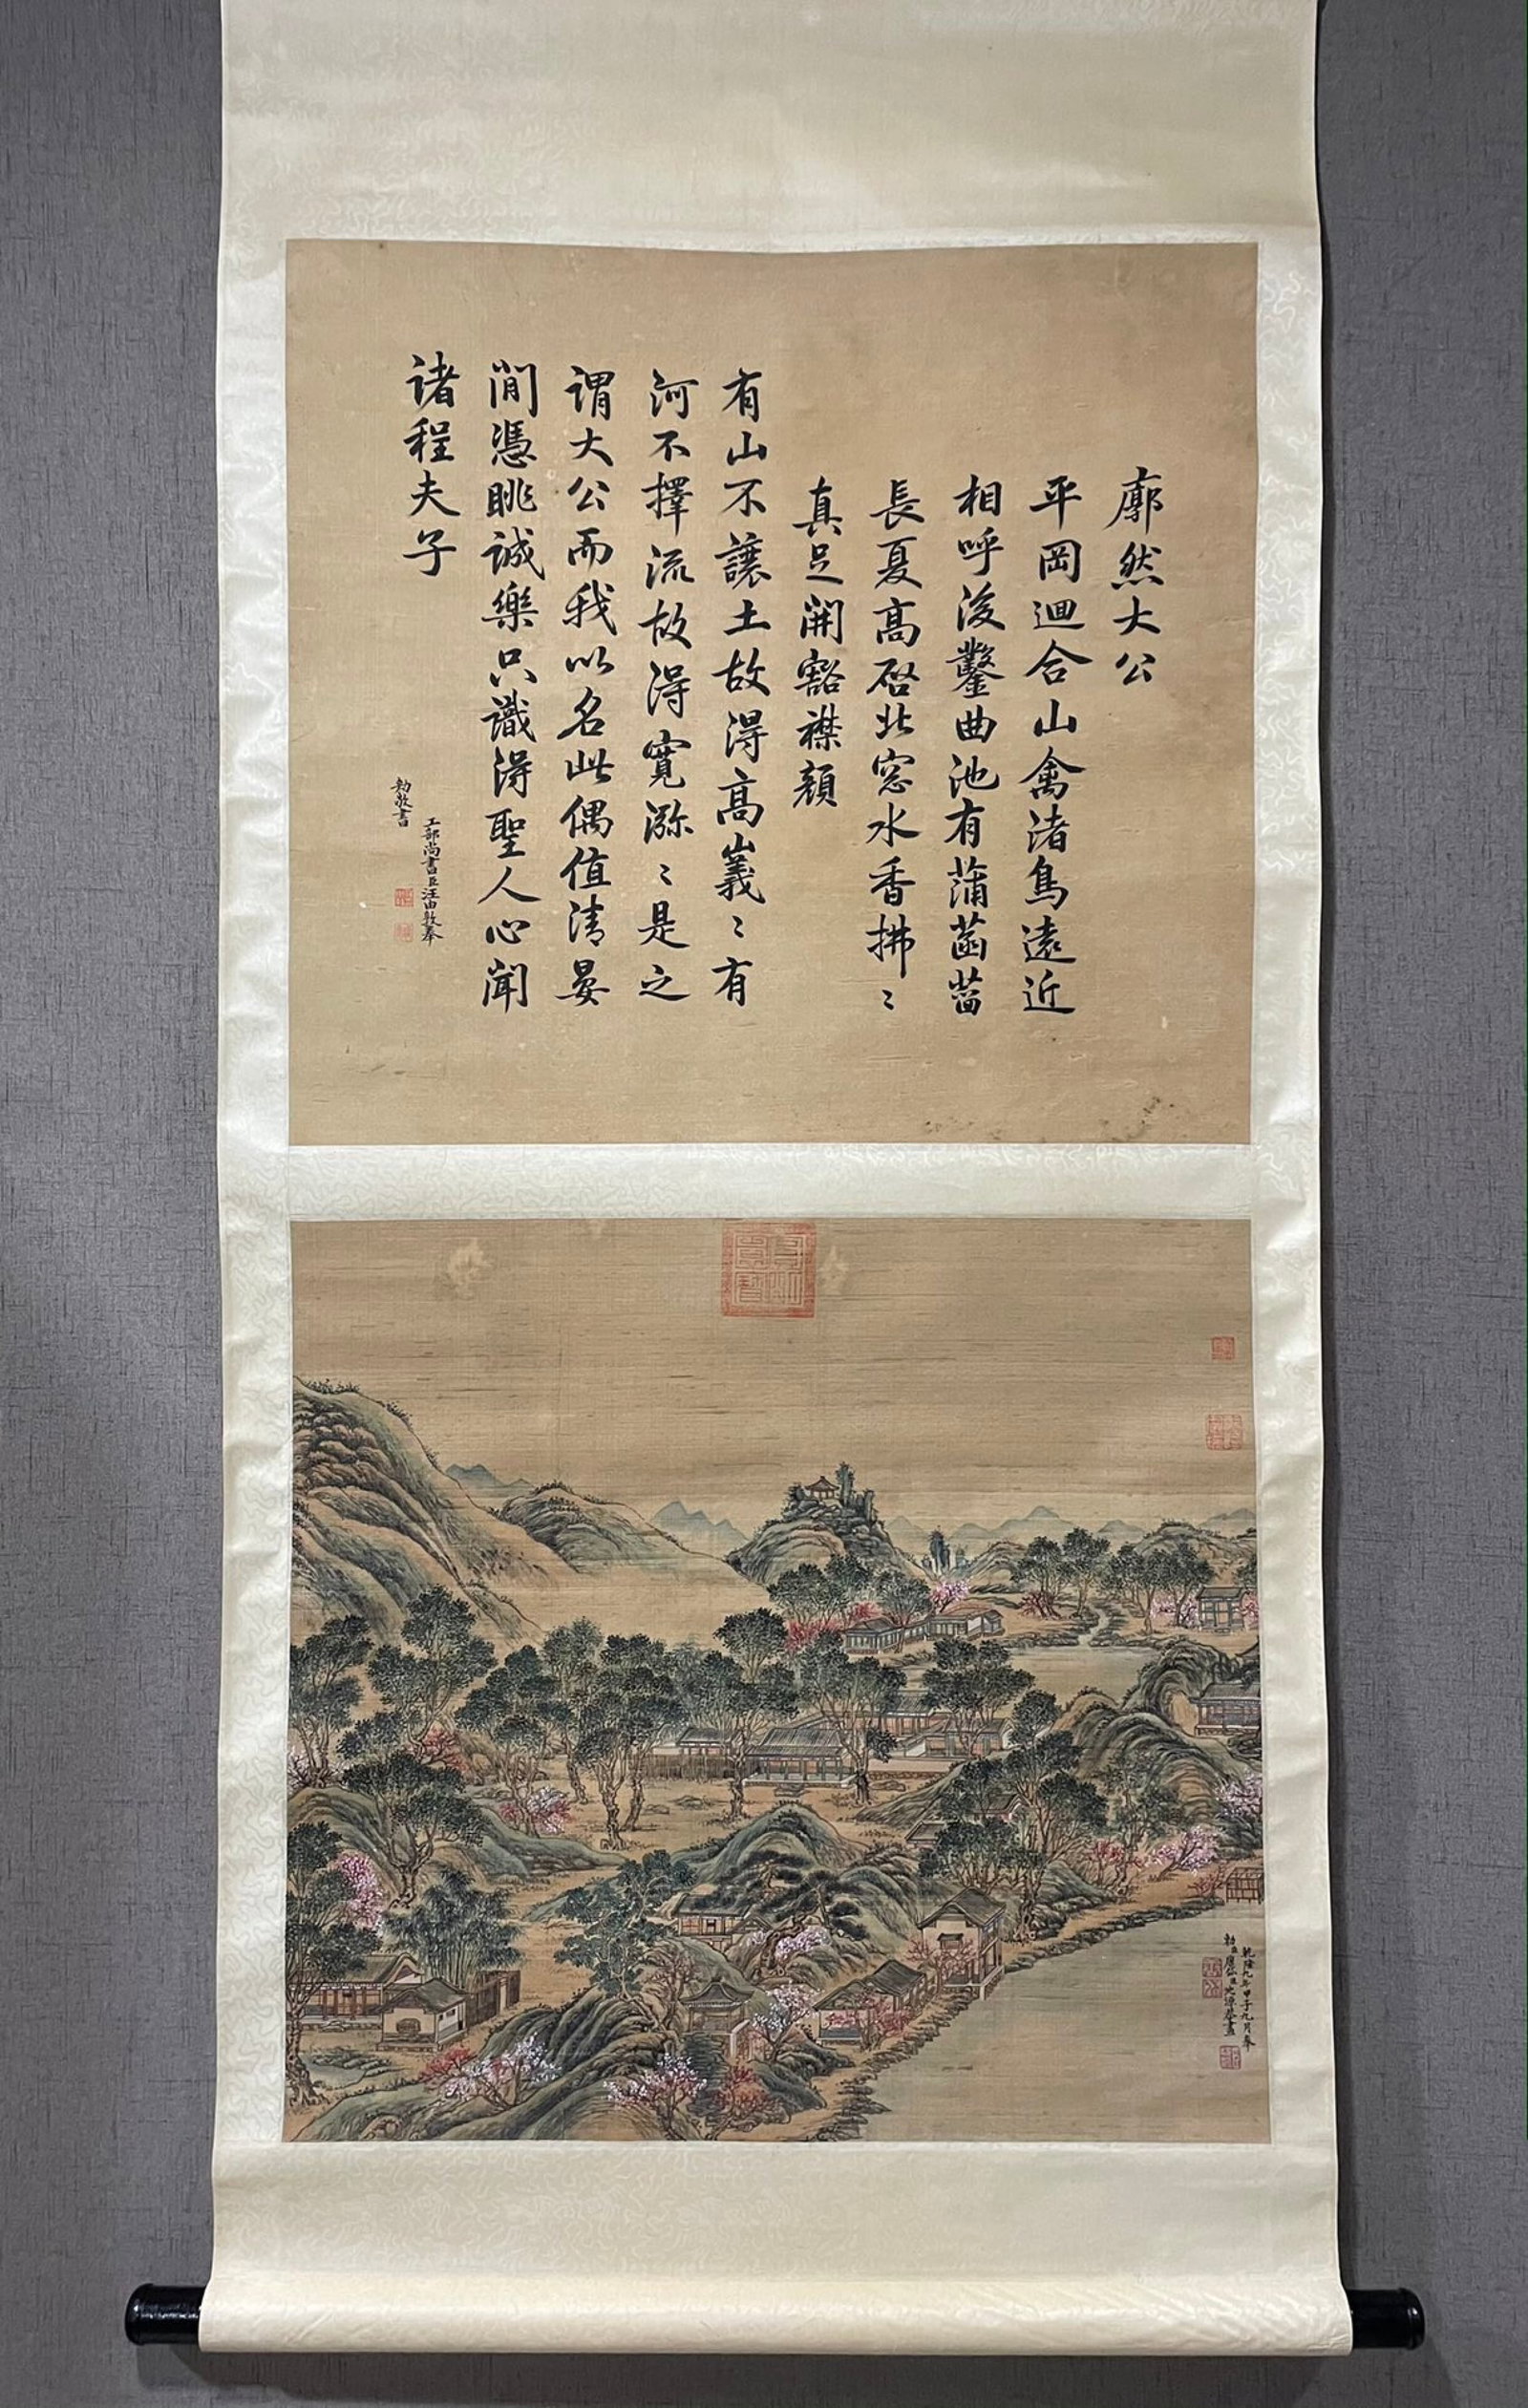 廓然大公
平岡迴合山禽渚鳥遠近
相呼後鑿曲池有蒲菡萏
長夏高啓北窓水香拂〻
真足開豁襟顏
有山不讓土故得高峩〻有
河不擇流故得寬瀰〻是之
謂大公而我以名此偶值清晏
閒憑眺誠樂只識得聖人心聞
諸程夫子
工部尚書臣汪由敦奉
勅敬書
乾隆九年甲子九月奉
勅臣唐岱臣沈源恭畫